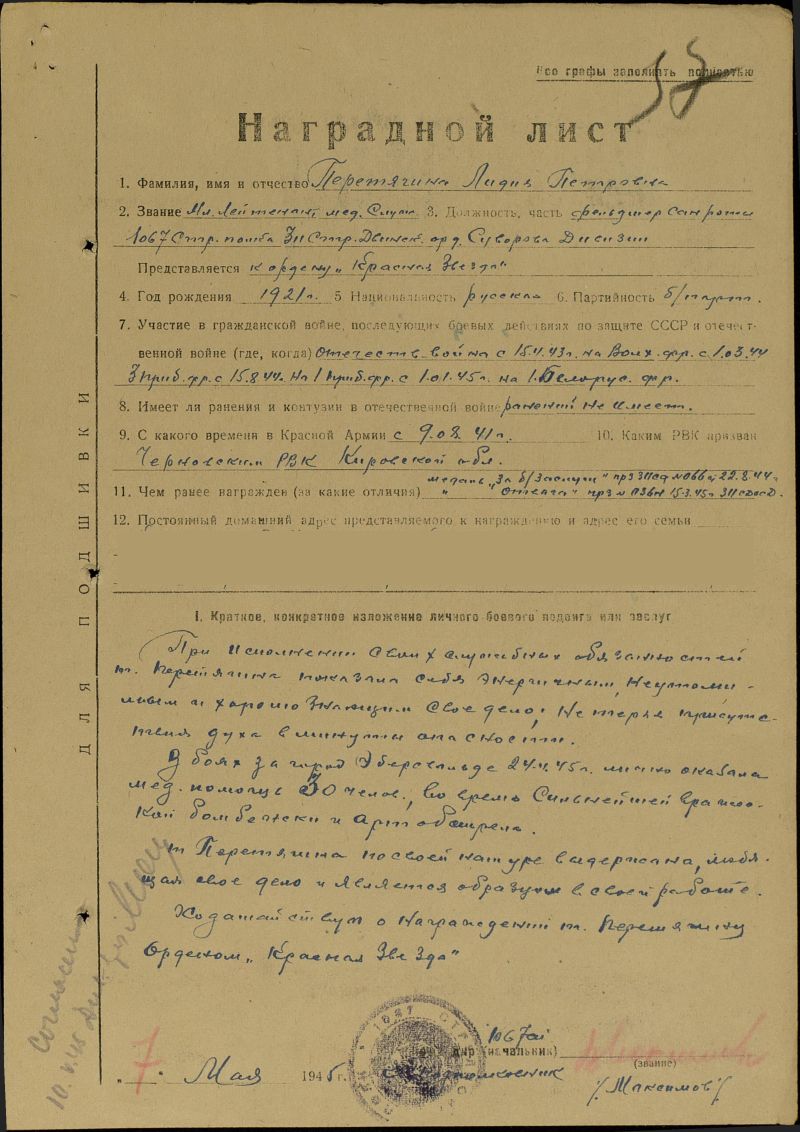 Все графы заполнять полностью
57
Наградной лист
1. Фамилия, имя и отчество Перетягина Лидия Петровна
2. Звание Мл. Лейтенант мед. Служ. 3. Должность, часть фельдшер санроты
1067 Стр. полка 311 Стр. Двинск. орд. Суворова Дивизии
Представляется к ордену „Красная Звезда"
4. Год рождения 1921 г. 5 Национальность русская 6. Партийность б/парт.
7. Участие в гражданской войне, последующих боевых действиях по защите СССР и отечест-
венной войне (где, когда) Отечеств. война с 15.4.43г. на Волх. фр. с 1.03.44
3 Приб. фр. с 15.8.44. на 1 Приб. фр. с 1.01.45г. на 1. Белорус. фр.
8. Имеет ли ранения и контузии в отечественной войне ранений не имеет.
9. С какого времени в Красной Армии с 9.08.41г. 10. Каким РВК призван
Черновским РВК Кировской обл.
медаль „За б/заслуги" 22.8.44г
11. Чем ранее награжден (за какие отличия) " Отвага" 15.3.45г
12. Постоянный домашний адрес представляемого к награждению и адрес его семьи
I. Краткое, конкретное изложение личного боевого подвига или заслуг
При исполнении своих служебных обязанностей
т. Перетягина показала себя энергичным, неутоми-
мым и хорошо знающим свое дело, не теряя присутс-
твия духа в минуты опасности.
В боях за город Эберсвальде 24.4.45г. лично оказала
мед. помощь 30 челов., во время сильнейшей вражес-
кой бомбежки и артобстрела.
т Перетягина по своей натуре выдержана, любя-
щая свое дело и является образцом в своей работе.
Ходатайствую о награждении т. Перетягину
Орденом „Красная Звезда"
1067
Командир (начальник)
(звание)
7 Мая 1945 г. подполковник
/Максимов/
ДЛЯ ПОДШИВКИ
Согласен